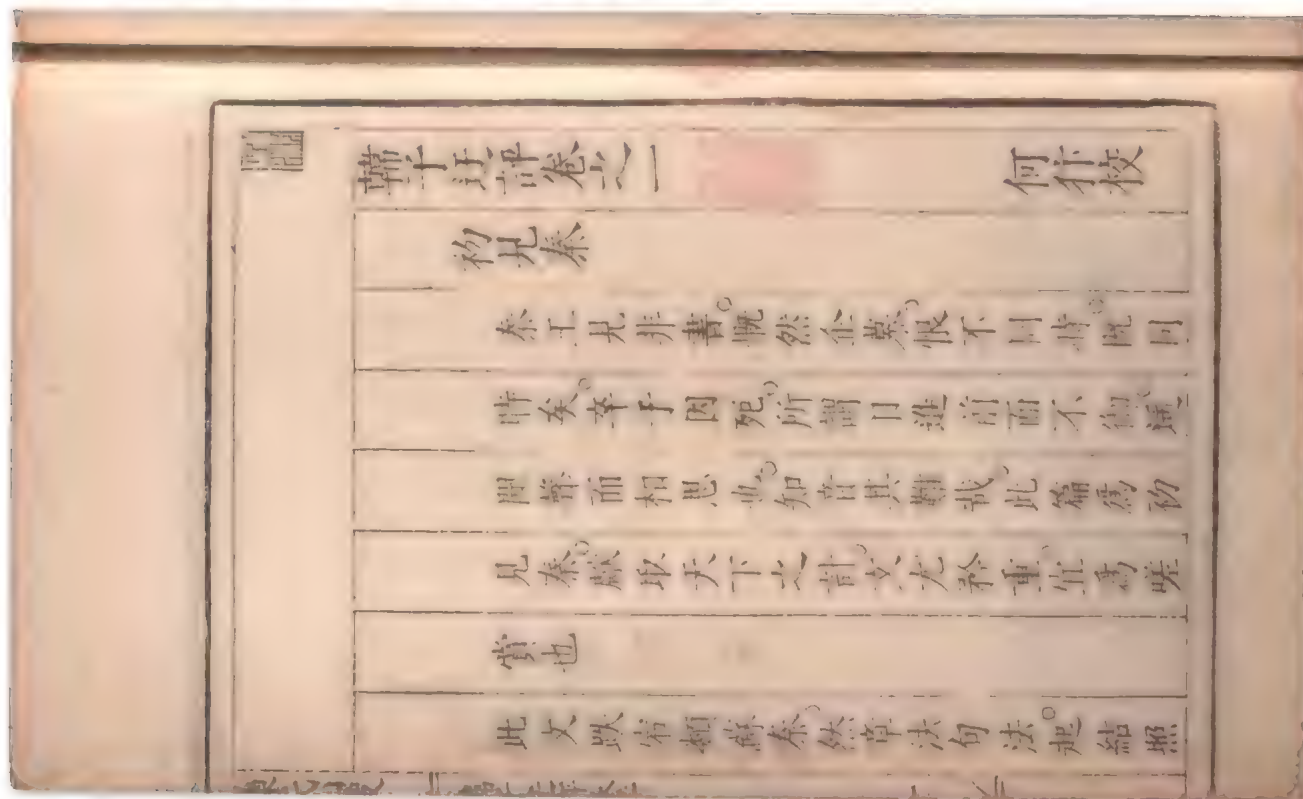 韓子迂評卷之一 何犿校
初見秦
秦王見非書慨然企慕恨不同時既同
時矣卒于囚死所謂日進前而不御遙
聞聲而相思也知音其難哉此篇爲初
見秦獻取天下之計文尤矜重宜爲嗟
賞也
此文跌宕類蘇秦然章法句法起結照